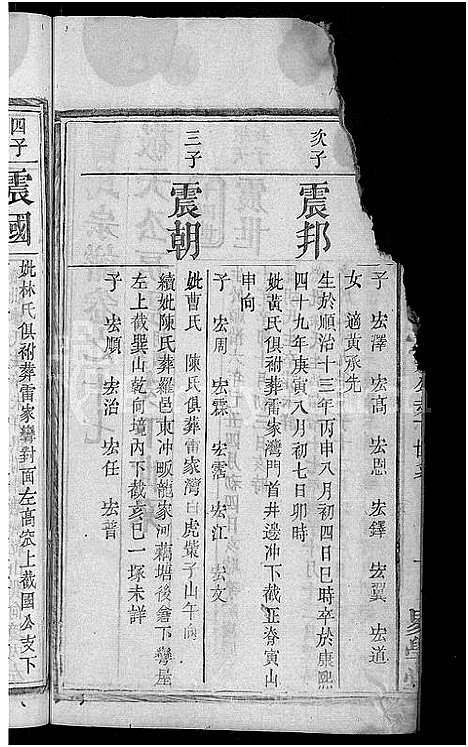 子 宏澤 宏高 宏恩 宏鐸 宏翼 宏道
女 適黃承先
次子 震邦 生於順治十三年丙申八月初四日巳時卒於康熙
四十九年庚寅八月初七日卯時
妣黃氏俱祔葬雷家灣門首井邊冲下截正脊寅山
申向
子 宏周 宏霖 宏江 宏文
三子 震朝 妣曹氏 陳氏俱葬雷家灣白虎棠子山午向
續妣陳氏葬羅邑東冲畈龍家河藕塘後倉下灣屋
左上截巽山乾向境內下截亥巳一塚未詳
子 宏順 宏治 宏任 宏普
四子 震國 妣林氏俱祔葬雷家灣對面左高窊上截國公支下